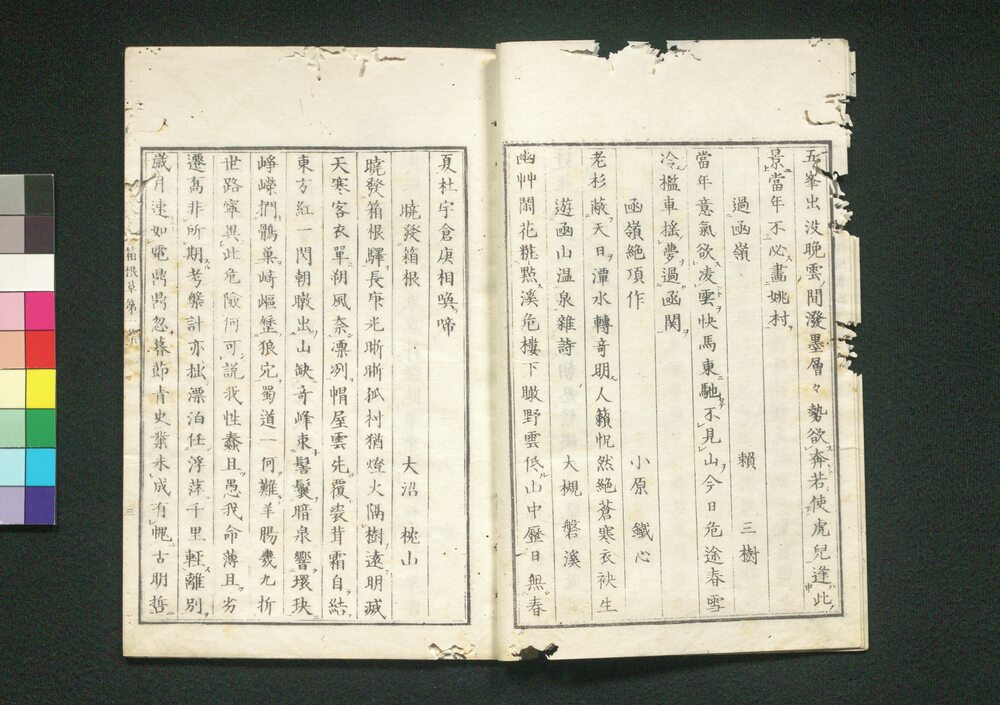 五峯出没晩雲間潑墨層々勢欲奔若使虎兒逢此
景當年不必畫姚村
過函嶺　賴　三樹
當年意氣欲凌雲快馬東馳不見山今日危途春雪
冷檻車搖夢過函関
函嶺絶頂作　小原　鐵心
老杉蔽天日潭水轉奇明人籟怳然絶蒼寒衣袂生
遊函山温泉雜詩　大槻　磐溪
幽艸閑花糚點溪危樓下瞰野雲低山中歷日無春
夏杜宇倉庚相喚啼
曉發箱根　大沼　枕山
曉發箱根驛長庚光晣晣孤村猶燈火隔樹遠明滅
天寒客衣單朔風奈凓冽帽屋雲先覆袋茸霜自結
東方紅一閃朝暾出山缺奇峰束髻鬟暗泉響環玦
崢嶸捫鶻巢崎嶇墮狼穴蜀道一何難羊腸幾九折
世路寧異此危險何可說我性蠢且愚我命薄且劣
遷喬非所期考槃計亦拙漂泊任浮萍千里輕離別
歳月速如電鼎鼎忽暮節青史業未成有愧古明哲
箱根草第一集
三